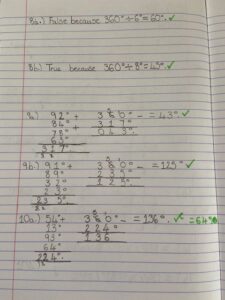 8a.) False because 360°÷6°=60°. ✓
8b.) True because 360°÷8°=45°. ✓
9a.) 92° + 360° - = 43°. ✓
84° 317°
78° 043°.
63°
317°
9b.) 91° + 360° - = 125° ✓
89° 235°
32° 125°.
23°
235°.
10a.) 54° + 360° - = 136°. ✓ = 64° 
13° 224°
93° 136
64°
224°.